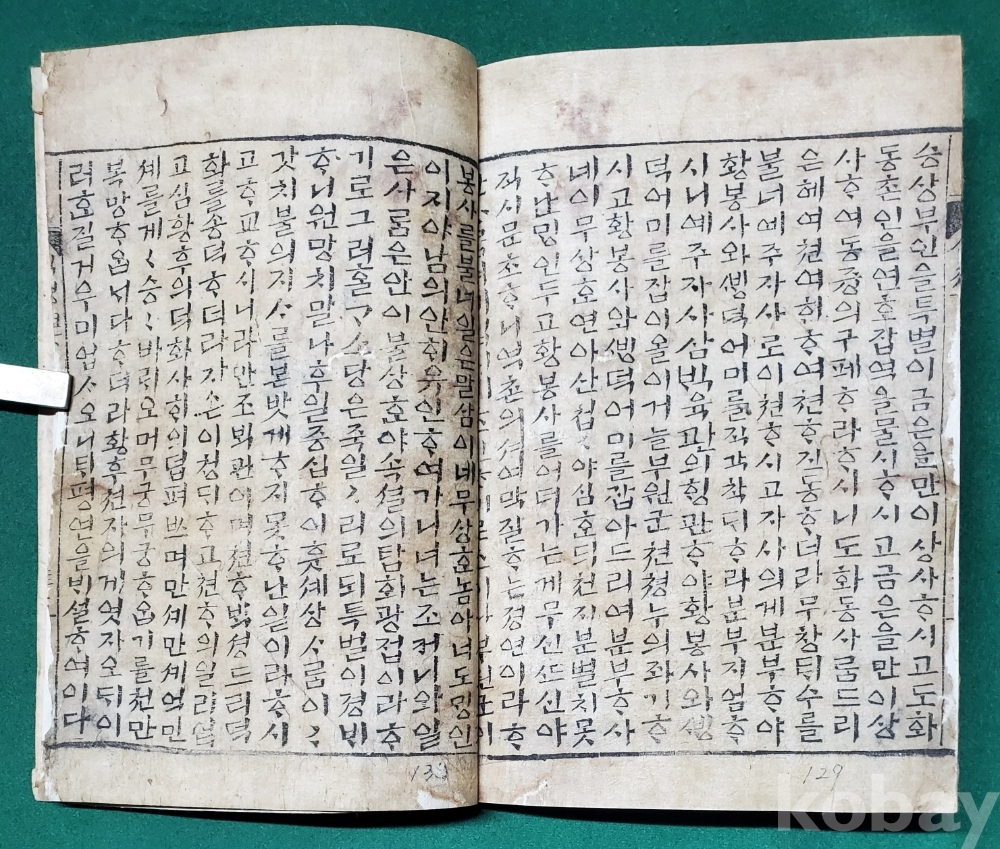 승상부인을특별이금은을만이상사ᄒᆞ시고도화
동촌인을연호잡역을물시ᄒᆞ시고금은을만이상
사ᄒᆞ여동즁의구폐ᄒᆞ라ᄒᆞ시니도화동사ᄅᆞᆷ드리
은혜여쳔여ᄒᆡᄒᆞ여쳔ᄒᆞ진동ᄒᆞ더라무창ᄐᆡ수를
불너예주자사로이쳔ᄒᆞ시고자사의게분부ᄒᆞ야
황봉사와ᄲᅢᆼ덕어미를직각착ᄃᆡᄒᆞ라분부지엄ᄒᆞ
시니예주자사삼ᄇᆡᆨ육관의ᄒᆡᆼ관ᄒᆞ야황봉사와ᄲᅢᆼ
덕어미를잡이올이거늘부원군쳔쳥누의좌기ᄒᆞ
시고황봉사와ᄲᅢᆼ덕어미를잡아드리여분부ᄒᆞ사
네이무상ᄒᆞᆫ연아산첩〻야심ᄒᆞᆫᄃᆡ쳔지분별치못
ᄒᆞ난ᄆᆡᆼ인두고황봉사를어더가는게무ᄉᆞᆫᄯᅳᆺ신야
직시문초ᄒᆞ니역촌의셔여막질ᄒᆞ는졍연이라ᄒᆞ
봉사를불너일은말삼이네무상ᄒᆞᆫ놈아너도ᄆᆡᆼ인
이지야남의안ᄒᆡ유인ᄒᆞ여가니너는조커니와일
은사ᄅᆞᆷ은안이불상ᄒᆞᆫ야속셜의탐화광졉이라ᄒᆞ
기로그러ᄒᆞᆯ
ᄒᆞ니원망치말나후일즁심ᄒᆞ이훗셰상사ᄅᆞᆷ이〻
갓치불의지사를본밧게ᄒᆞ지못ᄒᆞ난일이라ᄒᆞ시
고ᄒᆞ교ᄒᆞ시니라만조ᄇᆡᆨ관이며쳔ᄒᆞᄇᆡᆨ셩드리덕
화를송덕ᄒᆞ더라자손이쳥ᄃᆡᄒᆞ고쳔ᄒᆞ의일리업
고심황후의덕화사ᄒᆡ의덥펴쓰며만셰만셰억만
셰를게〻승〻바ᄅᆡ오며무궁무궁ᄒᆞ옵기를쳔만
복망ᄒᆞ옵
려ᄒᆞᆫ질거우미업사오니ᄐᆡ평연을ᄇᆡ셜ᄒᆞ여이다
133
129
kobay